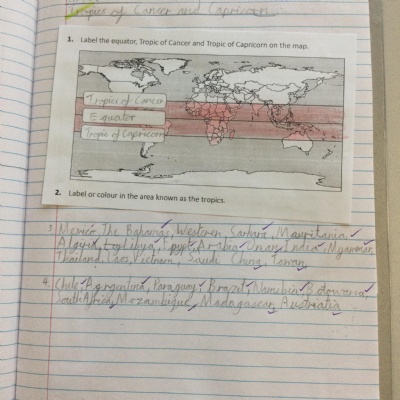 Tropics of Cancer and Capricorn
1. Label the equator, Tropic of Cancer and Tropic of Capricorn on the map.
Tropics of Cancer
Equator
Tropic of Capricorn
2. Label or colour in the area known as the tropics.
3 Mexico, The Bahamas, Western, Sarhara, Mauritania,
Libya, Egypt, Arabia, Oman, India, Myanmar,
Thailand, Laos, Vietnam, Saudi China, Taiwan
4. Chile, Argentina, Paraguay, Brazil, Namibia, Botswana,
South Africa, Mozambique, Madagascar, Australia